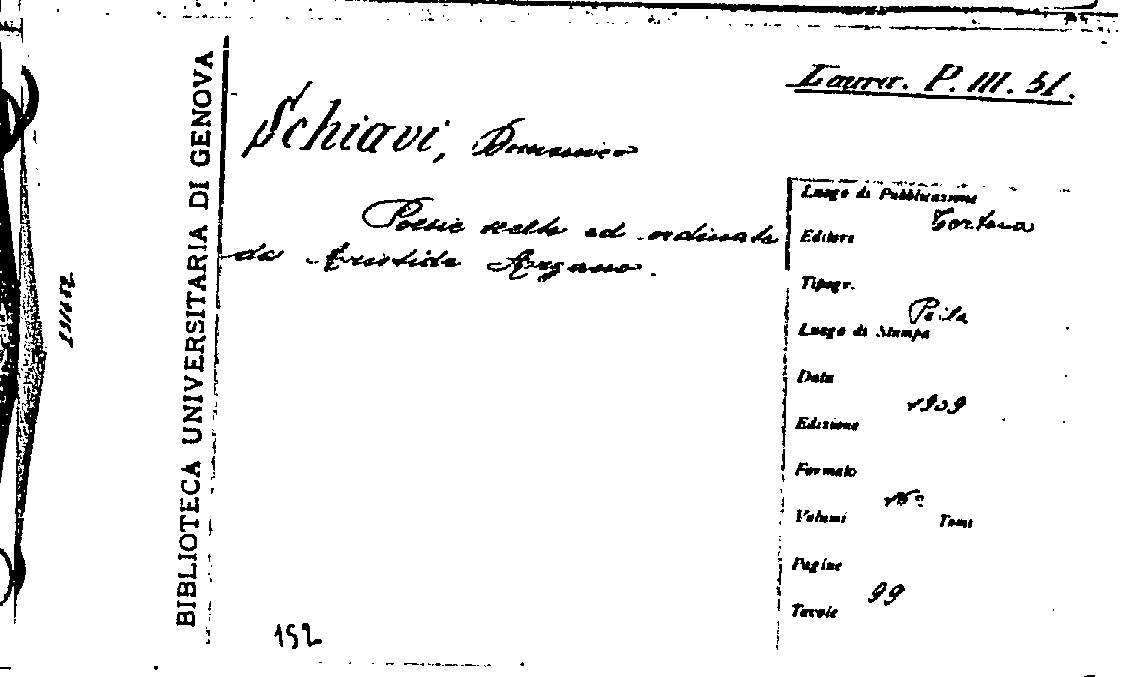 BIBLIOTECA UNIVERSITARIA DI GENOVA
Laura. P. III. 51.
Schiavi, Domenico
Poesie scelte ed ordinate
da Aristide Argano.
Luogo di Pubblicazione
Tortona
Editore
Tipogr.
Peila
Luogo di Stampa
Data
1909
Edizione
Formato
16º
Volumi Tomi
Pagine
99
Tavole
152